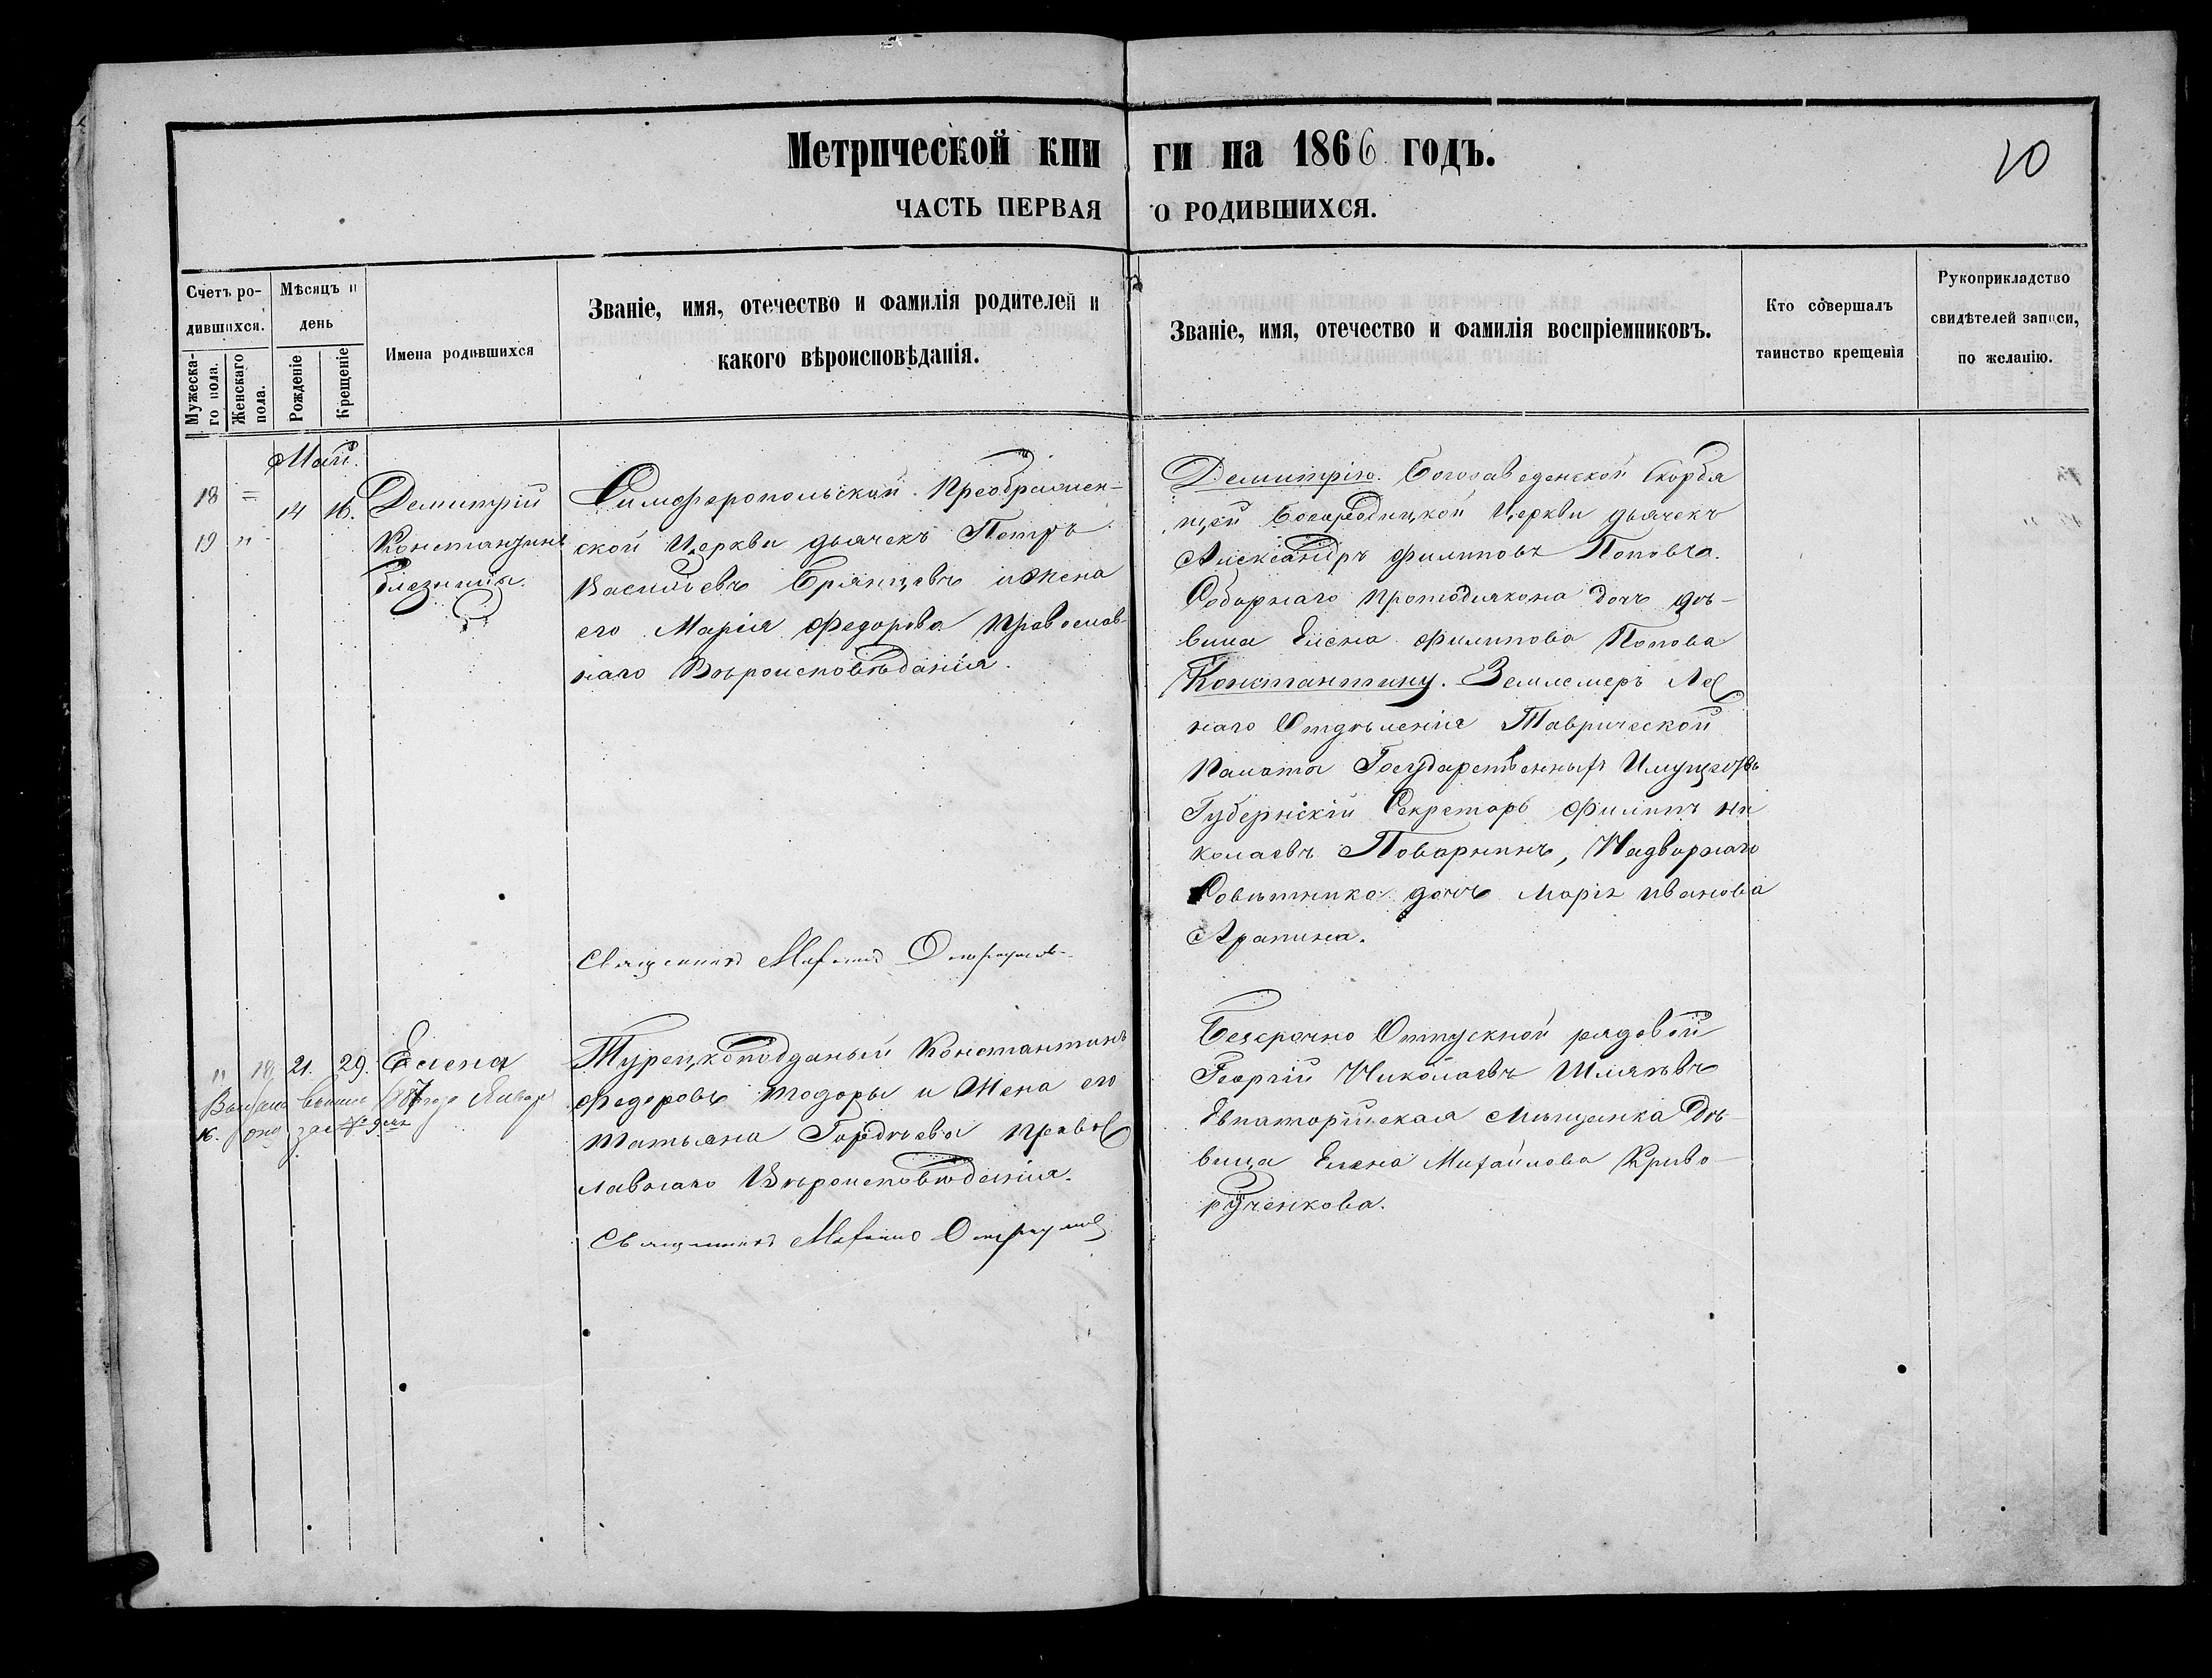 Метрической кни ги на 1866 годъ.
10
ЧАСТЬ ПЕРВАЯ О РОДИВШИХСЯ.
Счетъ ро-
дившихся.
Мужеска-
го пола.
Женскаго
пола.
Мѣсяцъ и
день
Рожденіе
Крещеніе
Имена родившихся
Званіе, имя, отечество и фамилія родителей и
какого вѣроисповѣданія.
Званіе, имя, отечество и фамилія воспріемниковъ.
Кто совершалъ
таинство крещенія
Рукоприкладство
свидѣтелей записи,
по желанію.
Май.
18 = 14 16. Демитрій
19 " Константинъ
близници.
Симферопольской Преображен-
ской Церкви дьячекъ Петръ
Васильевъ Брянцевъ и жена
его Марія Федорова Православ-
наго Вѣроисповѣданія.
Священникъ
Демитрію. Богозаведенской Скорбя
щей Богородицкой Церкви дьячекъ
Александръ Филиповъ Поповъ.
Соборнаго Протодиякона дочь дѣ-
вица Елена Филипова Попова
Константину. Землемеръ Лес
наго Отдѣленія Таврической
Палаты Государственныхъ Имуществъ
Губернскій Секретарь Филипъ Ни
колаевъ Поварнинъ, Надворнаго
Совѣтника дочь Марія Иванова
Арапина.
" 19 21. 29. Елена
16.
Турецкоподданый Константинъ
Федоровъ Тодоры и Жена его
Татьяна Гордѣева Правос
лавнаго Вѣроисповѣданія.
Священникъ
Безсрочно Отпускной рядовой
Георгій Николаевъ Шляхъвъ
Евпаторійская Мѣщанка Дѣ-
вица Елена Михайлова Криво-
рученкова.